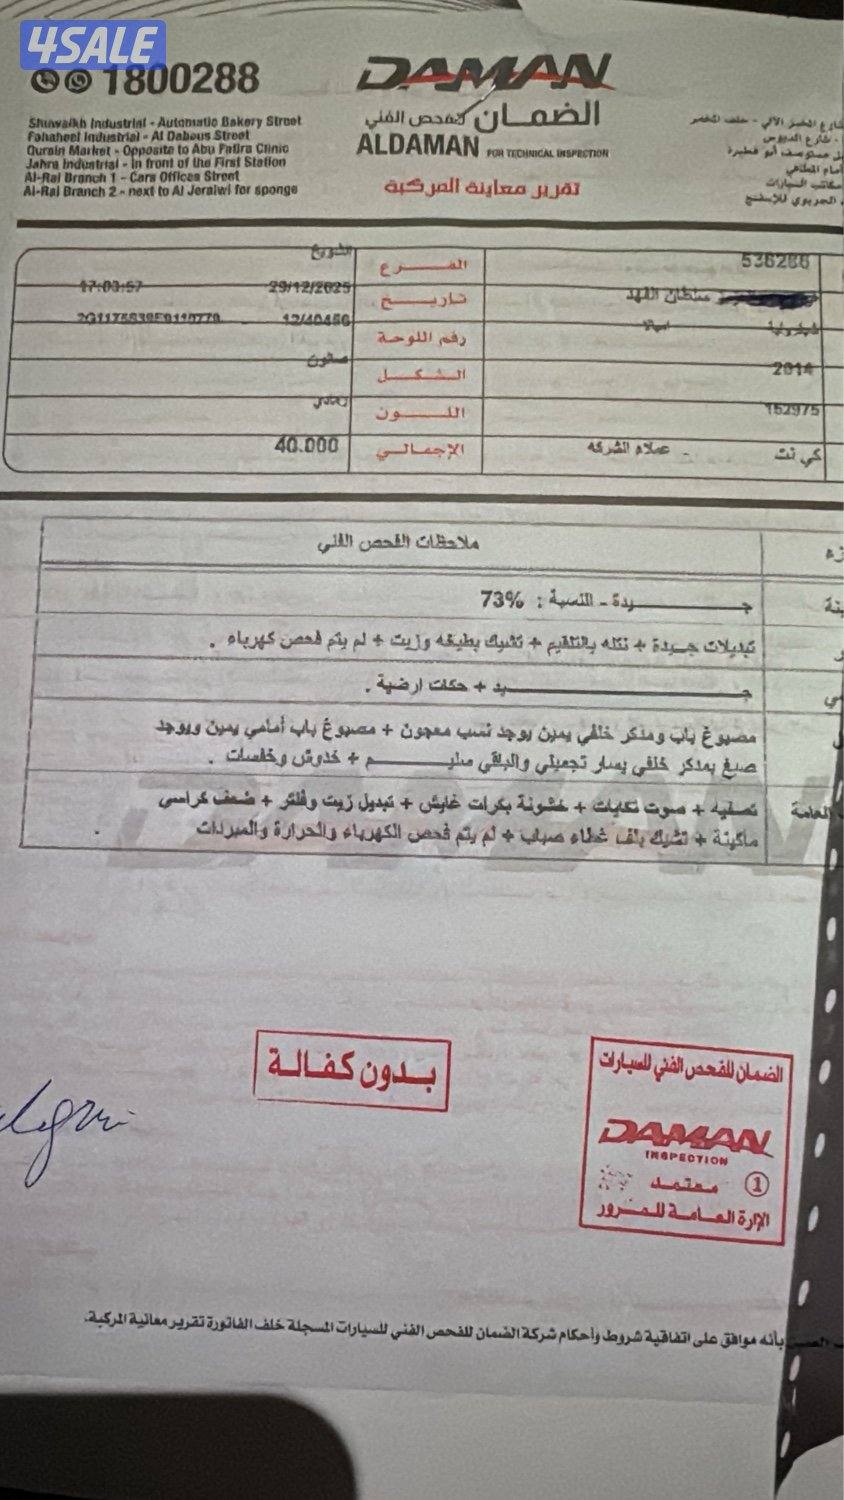 4SALE
1800288
DAMAN
الضمان للفحص الفني
ALDAMAN FOR TECHNICAL INSPECTION
تقرير معاينة المركبة
Shuwaikh Industrial - Automatic Bakery Street
Fahaheel Industrial - Al Dabous Street
Qurain Market - Opposite to Abu Fatira Clinic
Jahra Industrial - in front of the First Station
Al-Rai Branch 1 - Cars Offices Street
Al-Rai Branch 2 - next to Al Jeraiwi for sponge
شارع المخبز الآلي - خلف المخفر
- شارع الدبوس
مستوصف أبو فطيرة
أمام المطافي
مكاتب السيارات
الجريوي للإسفنج
536286 الفرع الشويخ
سلطان الفهد تاريخ 29/12/2025 17:03:57
شيفروليه امبالا رقم اللوحة 12/40456
2014 الشكل صالون
152975 اللون رمادي
كي نت - عملاء الشركه الإجمالي 40.000
ملاحظات الفحص الفني
جيدة - النسبة : 73%
تبديلات جيدة + نتله بالتلقيم + تشيك بطيقه وزيت + لم يتم فحص كهرباء .
جيد + حكات ارضية .
مصبوغ باب ومدكر خلفي يمين يوجد نسب معجون + مصبوغ باب أمامي يمين ويوجد
صبغ بمدكر خلفي يسار تجميلي والباقي سليم + خدوش وخفسات .
العامة تصفيه + صوت تكايات + خشونة بكرات غايش + تبديل زيت وفلتر + ضعف كراسي
ماكينة + تشيك بلف غطاء صباب + لم يتم فحص الكهرباء والحرارة والمبردات .
بدون كفالة
الضمان للفحص الفني للسيارات
DAMAN
INSPECTION
معتمد 1
الإرة العامة للمرور
بأنه موافق على اتفاقية شروط وأحكام شركة الضمان للفحص الفني للسيارات المسجلة خلف الفاتورة تقرير معاينة المركبة.